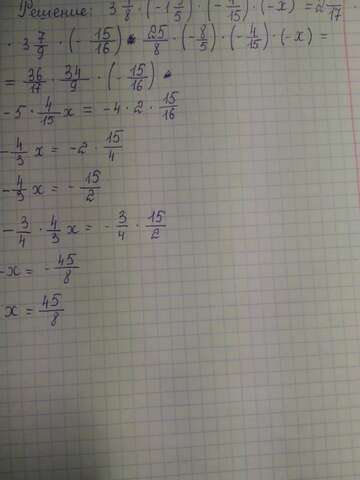 Решение: 3 1/8 · (-1 3/5) · (-4/15) · (-x) = 2 2/17
· 3 7/9 · (-15/16) · 25/8 · (-8/5) · (-4/15) · (-x) =
= 36/17 · 34/9 · (-15/16)
-5 · 4/15 x = -4 · 2 · 15/16
-4/3 x = -2 · 15/4
-4/3 x = -15/2
-3/4 · 4/3 x = -3/4 · 15/2
-x = -45/8
x = 45/8